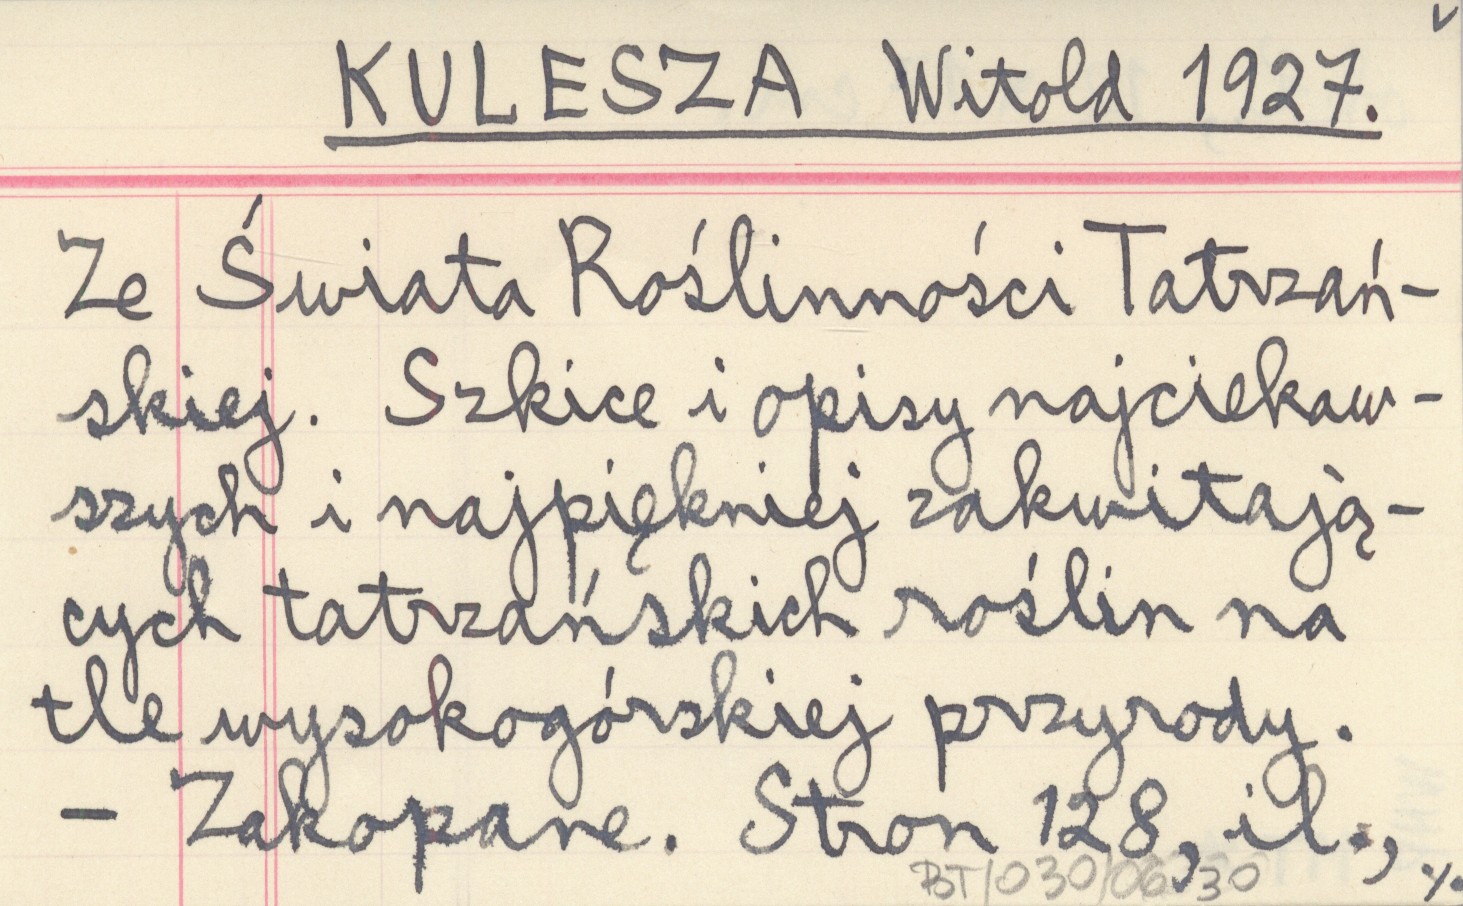 KULESZA Witold 1927.
Ze Świata Roślinności Tatrzań-
skiej. Szkice i opisy najciekaw-
szych i najpiękniej zakwitają-
cych tatrzańskich roślin na
tle wysokogórskiej przyrody.
- Zakopane. Stron 128, il.,
BT/030/06 30 ./.